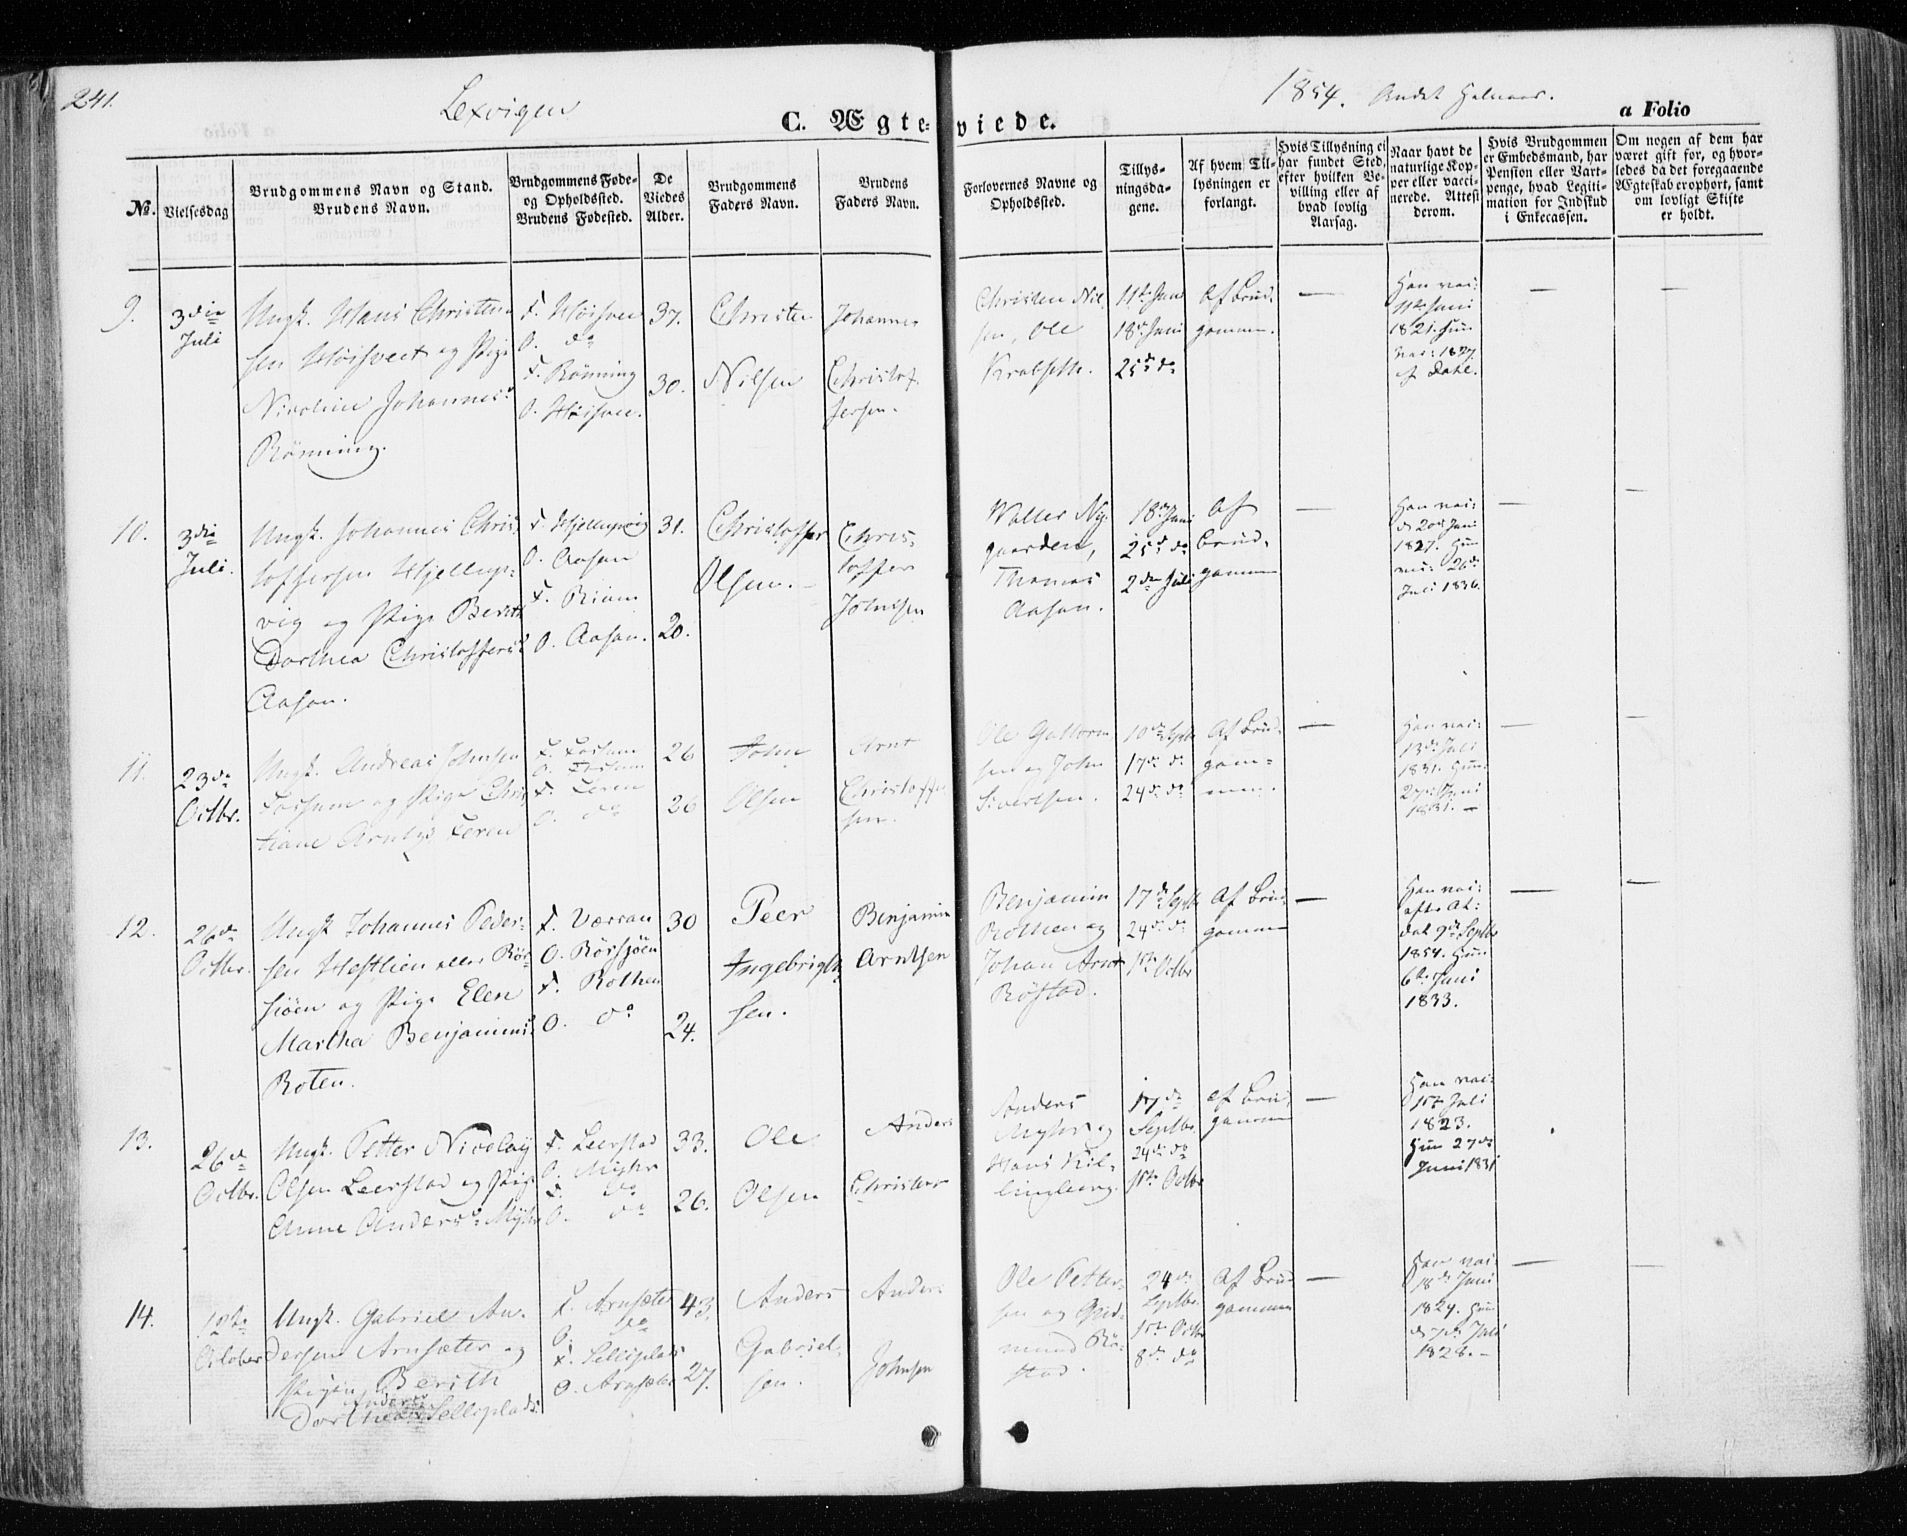 241.
Lexvigen
1854. Andet Halvaar.
C. Ægteviede.
a Folio
No.
Vielsesdag
Brudgommens Navn og Stand.
Brudens Navn.
Brudgommens Føde-
og Opholdssted.
Brudens Fødested.
De
Viedes
Alder.
Brudgommens
Faders Navn.
Brudens
Faders Navn.
Forlovernes Navne og
Opholdssted.
Tillys-
ningsda-
gene.
Af hvem Til-
lysningen er
forlangt.
Hvis Tillysning ei
har fundet Sted,
efter hvilken Be-
villing eller af
hvad lovlig
Aarsag.
Naar havt de
naturlige Kop-
per eller vacci-
nerede. Attest
derom.
Hvis Brudgommen
er Embedsmand, har
Pension eller Vart-
penge, hvad Legiti-
mation for Indskud
i Enkecassen.
Om nogen af dem har
været gift før, og hvor-
ledes da det foregaaende
Ægteskab er ophørt, samt
om lovligt Skifte
er holdt.
9.
3die
Juli
Ungk. Hans Christen-
sen Høisveet og Pige
Nicoline Johannesd
Rönning.
F. Höisven
O. do
F. Rönning
O. Höisven.
37.
30.
Christen
Nilsen
Johannes
Christof-
fersen.
Christen Nil-
sen, Ole
Krabseth.
11te Juni
18de Juni
25de do
Af Brud-
gommen.
—
Han vac:
11te Juni
1821. Hun
vac: 1827.
af Dahl.
—
—
10.
3die
Juli.
Ungk. Johannes Chris-
toffersen Hjellup-
vig og Pige Berith
Dorthea Christoffersd
Aasan.
F. Hjellupvig
O. Aasan
F. Rian
O. Aasan.
31.
20.
Christoffer
Olsen.
Chris-
toffer
Johnsen
Walter Ny-
gaarden,
Thomas
Aasan.
18de Juni
25de do
2den Juli
Af
Brud-
gommen
—
Han vac:
d 20de Juni
1827. Hun
vac: 26de
Juli 1836.
—
—
11.
23de
Octbr.
Ungk. Andreas Johnsen
Fossum og Pige Chris
tiane Arntsd Leren
F. Fossum
O. Fossum
F. Leren
O. do
26
26
John
Olsen
Arnt
Christoffer
sen.
Ole Guttorm
sen og John
Sivertsen.
10de Septb
17de do
24de do
Af Brud-
gom-
men.
—
Han vac:
13de Juli
1831. Hun:
27de Juni
1831. —
—
—
12.
26de
Octbr.
Ungk Johannes Peder-
sen Hestlien eller Rör-
siöen og Pige Elen
Martha Benjaminsd
Roten.
F. Værran
O. Rörsjöen
F. Rothen
O. do
30
24.
Peer
Ingebrigt-
sen.
Benjamin
Arntsen
Benjamin
Rothen og
Johan Arnt
Röstad.
17de Septb
24de do
1ste Octbr
Af Brud
gommen
—
Han vac:
efter At-
dat 9de Septbr
1854. Hun
6te Juni
1833.
—
—
13.
26de
Octbr.
Ungk. Petter Nicolay
Olsen Leerstad og Pige
Anne Andersd Myhr
F. Leerstad
O. Myhr
F. do
O. do
33.
26.
Ole
Olsen
Anders
Christens
Anders
Myhr og
Hans Kil-
lingberg.
17de
Septbr.
24de do
1ste Octbr
Af Brud-
gommen
—
Han vac:
1ste Juli
1823.
Hun 27de
Juni 1831
14.
October
Ungk. Gabriel An-
dersen Arnsæter og
Pigen Berith
Anders
Dorthea Selliplads.
F. Arnsæter
O. do
F. Selliplads
O. Arnsæter
43.
27.
Anders
Gabriel-
sen.
Anders
Johnsen
Ole Petter-
sen og Gud-
mund Rö-
stad.
24de
Septbr.
1ste Octbr
8de do
Af Brud
gommen
—
Han vac:
18de Juni
1824. Hun
d 7de Juli
1828. —
—
—